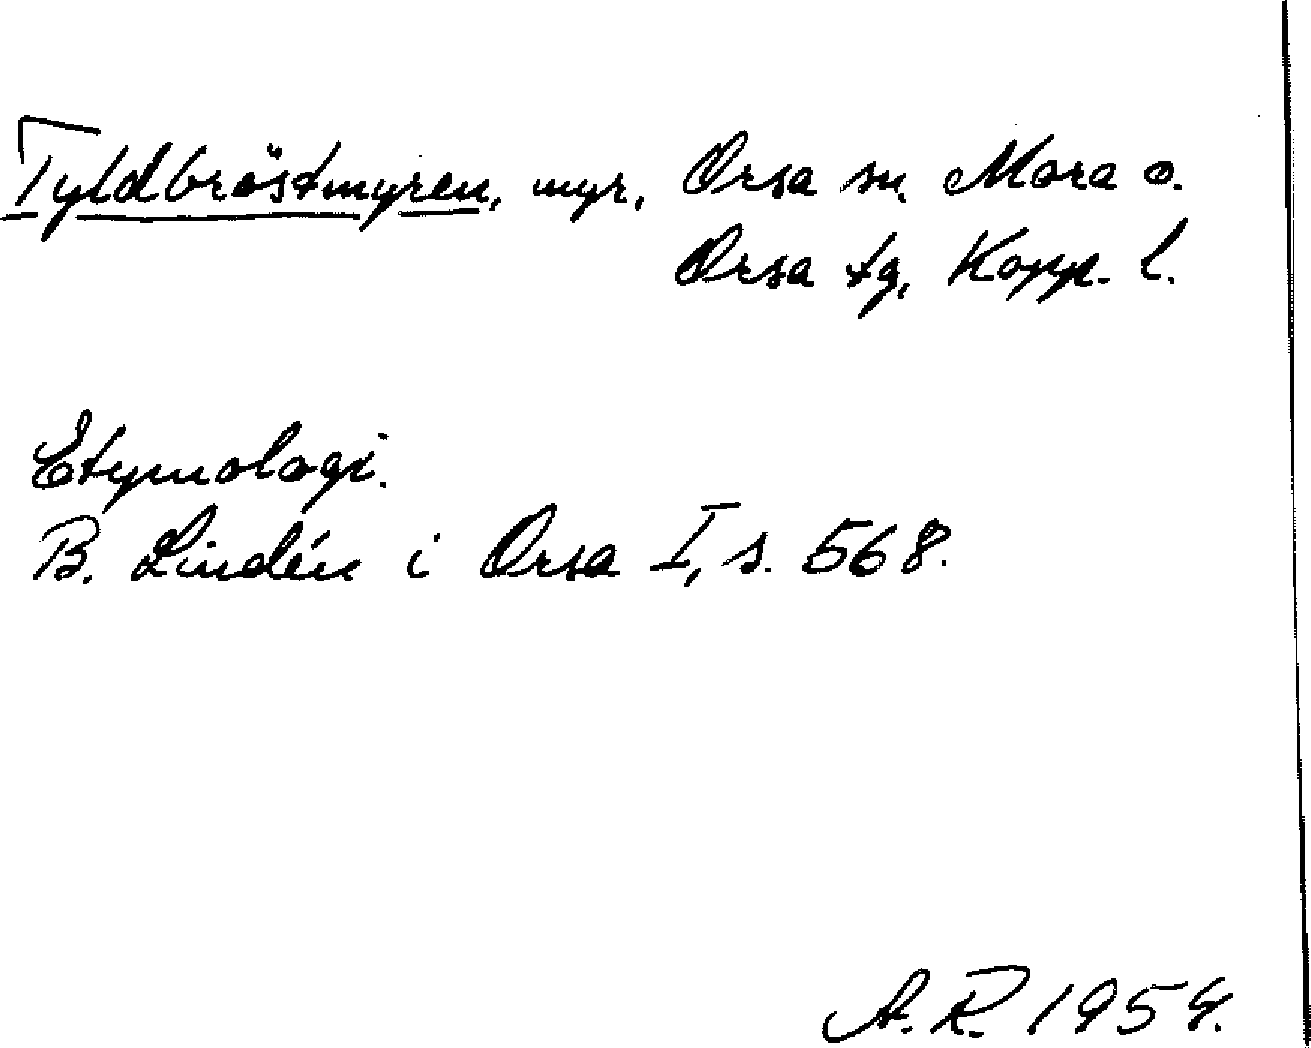 Tyldbröstmyren, myr, Orsa sn. Mora o.
Orsa tg, Kopp. l.
Etymologi.
B. Lindén i Orsa I, s. 568.
A. R. 1954.